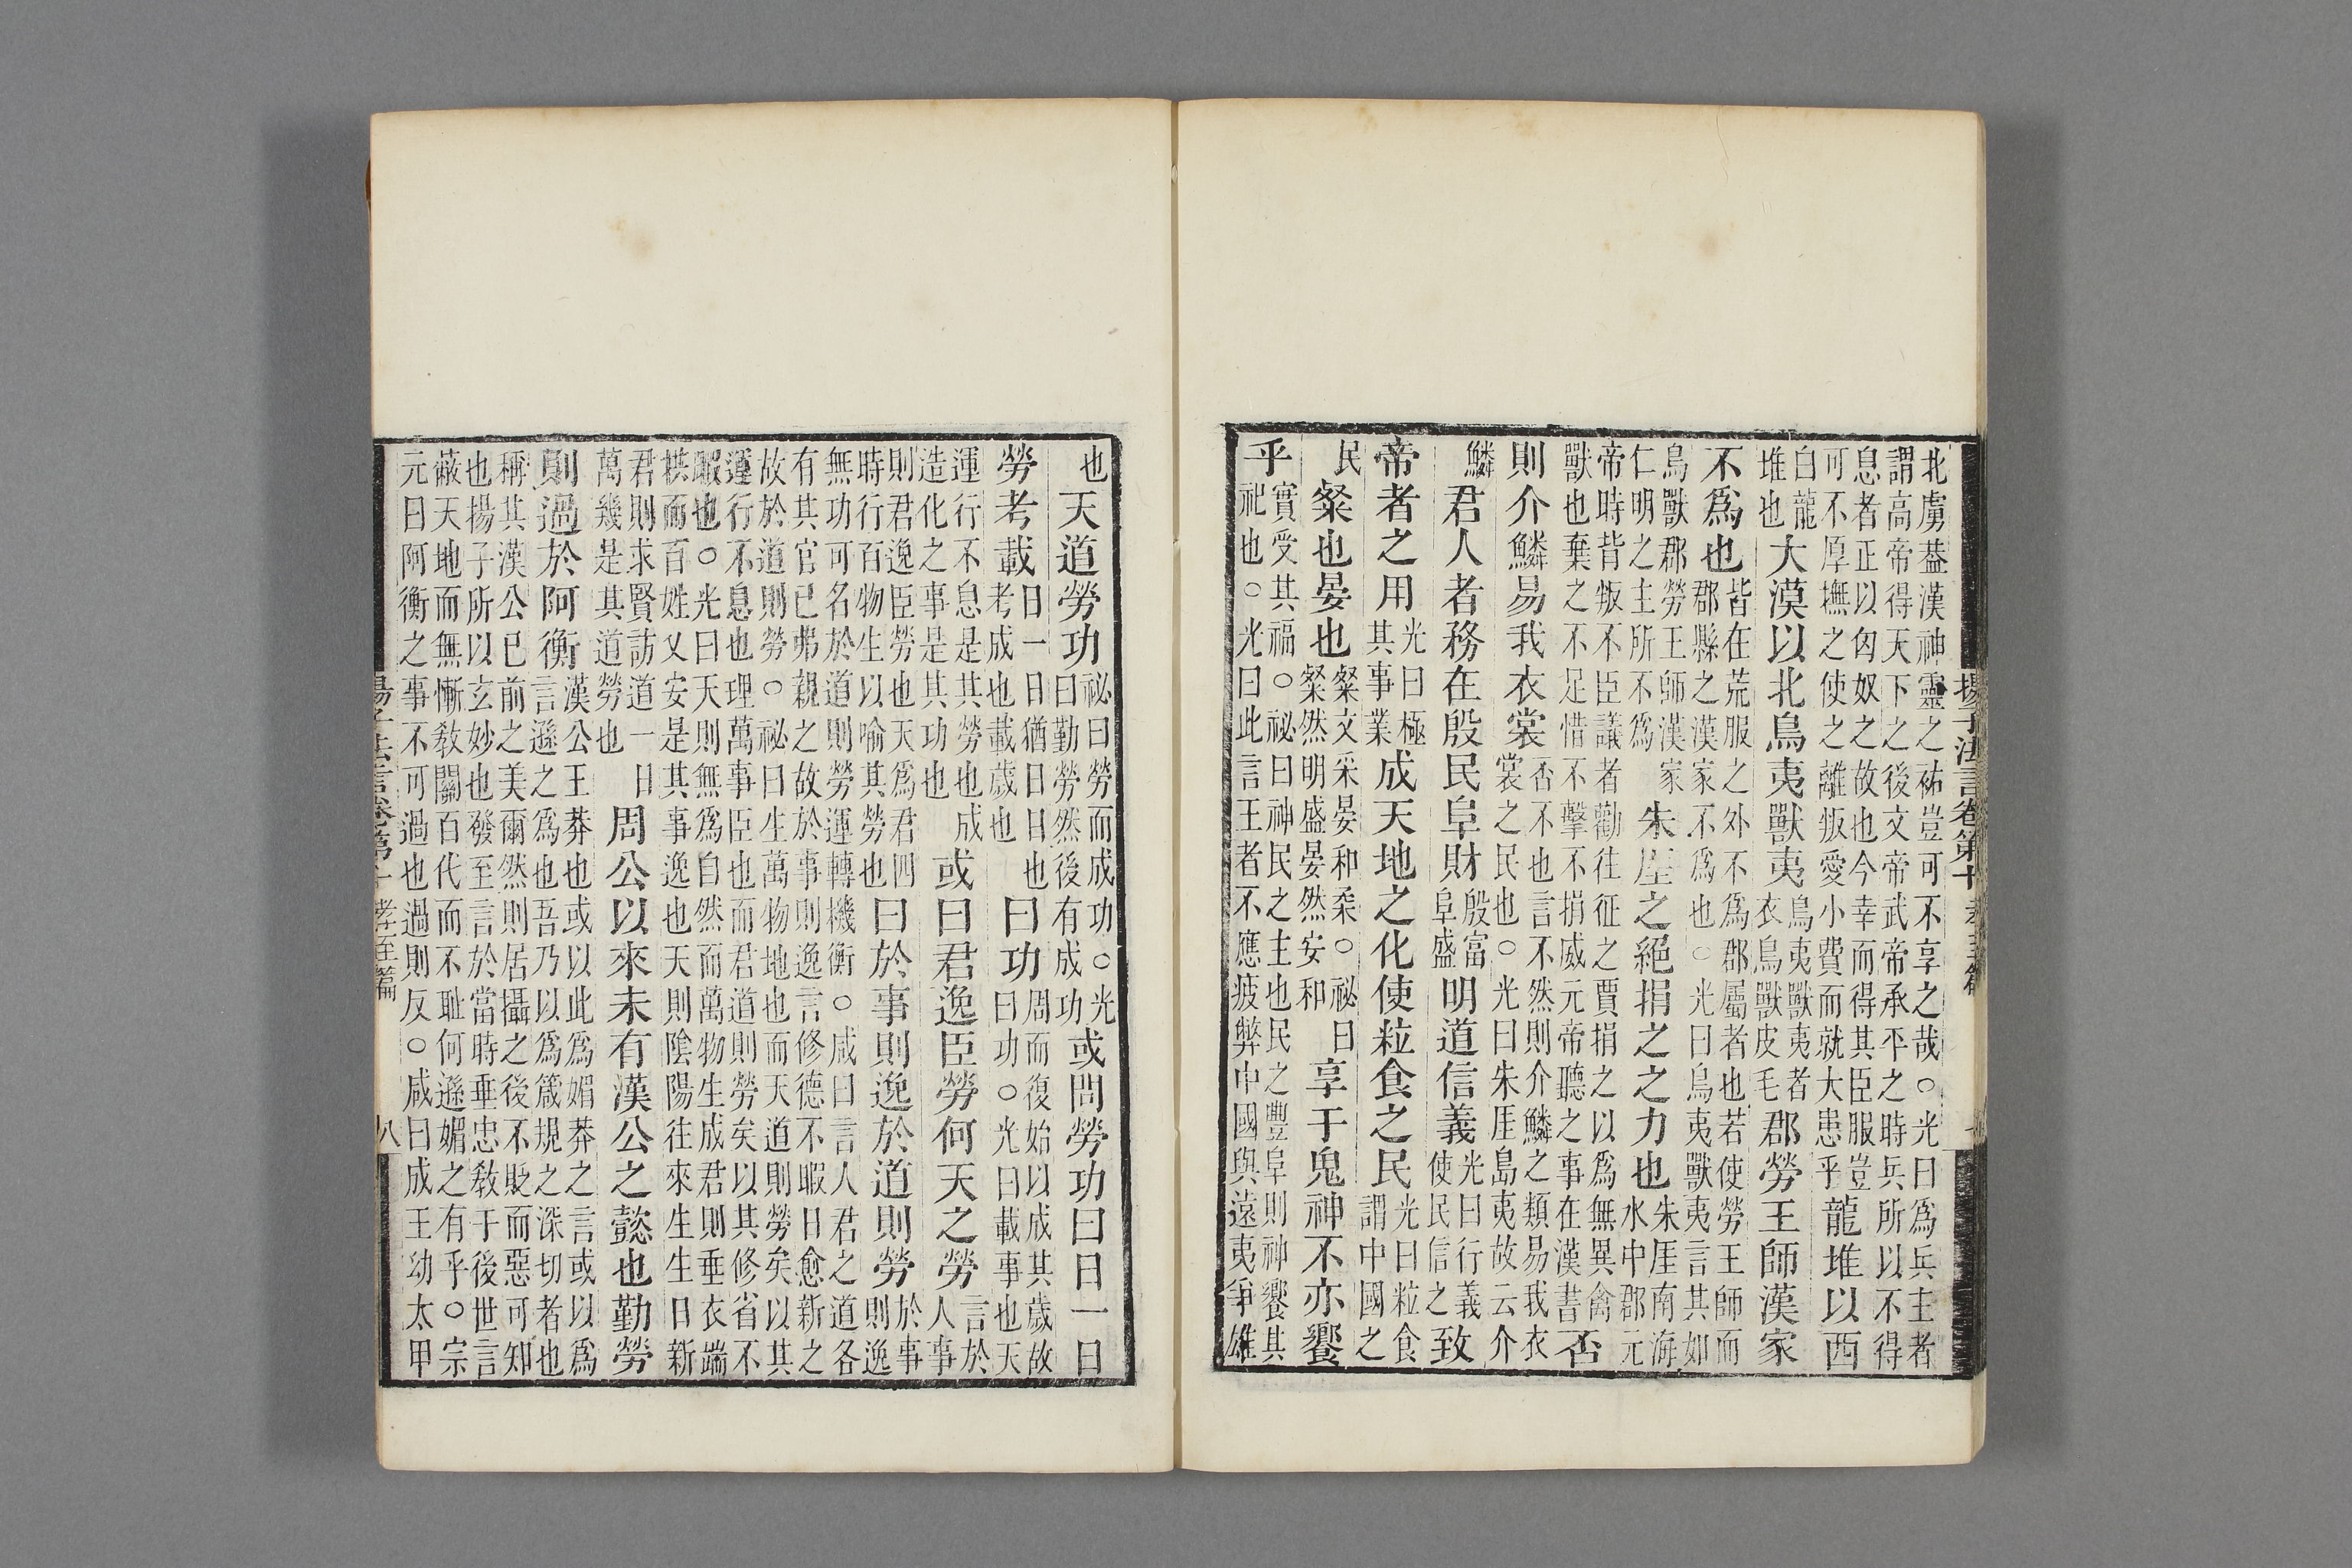 揚子法言卷第十 孝至篇
北虜葢漢神靈之祐豈可不享之哉○光曰爲兵主者
謂高帝得天下之後文帝武帝承平之時兵所以不得
息者正以匈奴之故也今幸而得其臣服豈
可不厚撫之使之離叛愛小費而就大患乎龍堆以西
白龍堆也大漠以北鳥夷獸夷鳥夷獸夷者衣鳥獸皮毛郡勞王師漢家
不爲也皆在荒服之外不爲郡屬者也若使勞王師而
郡縣之漢家不爲也○光曰鳥夷獸夷言其如
鳥獸郡勞王師漢家朱厓之絕捐之之力也朱厓南海水中郡元
仁明之主所不爲
帝時背叛不臣議者勸往征之賈捐之以爲無異禽
獸也棄之不足惜不擊不捐威元帝聽之事在漢書否
則介鱗易我衣裳否不也言不然則介鱗之類易我衣
裳之民也○光曰朱厓島夷故云介
鱗君人者務在殷民阜財殷富阜盛明道信義光曰行義使民信之致
帝者之用光曰極其事業成天地之化使粒食之民光曰粒食謂中國之
民粲也晏也粲文采晏和柔○祕曰粲然明盛晏然安和享于鬼神不亦饗
乎實受其福○祕曰神民之主也民之豐阜則神饗其
祀也○光曰此言王者不應疲弊中國與遠夷爭雄
也天道勞功祕曰勞而成功○光曰勤勞然後有成功或問勞功曰日一日
勞考載曰一日猶日日也考成也載歲也曰功周而復始以成其歲故曰功○光曰載事也天
運行不息是其勞也成造化之事是其功也或曰君逸臣勞何天之勞言於人事
則君逸臣勞也天爲君四時行百物生以喻其勞也曰於事則逸於道則勞於事則逸
無功可名於道則勞運轉機衡○咸曰言人君之道各
有其官已弗親之故於事則逸言修德不暇日愈新之
故於道則勞○祕曰生萬物地也而天道則勞矣以其
運行不息也理萬事臣也而君道則勞矣以其修省不
暇也○光曰天則無爲自然而萬物生成君則垂衣端
拱而百姓乂安是其事逸也天則陰陽往來生生日新
君則求賢訪道一日萬幾是其道勞也周公以來未有漢公之懿也勤勞
則過於阿衡漢公王莽也或以此爲媚莽之言或以爲
言遜之爲也吾乃以爲箴規之深切者也
稱其漢公已前之美爾然則居攝之後不貶而惡可知
也揚子所以玄妙也發至言於當時垂忠教于後世言
蔽天地而無慚教關百代而不恥何遜媚之有乎○宗
元曰阿衡之事不可過也過則反○咸曰成王幼太甲
揚子法言卷第十 孝至篇 八